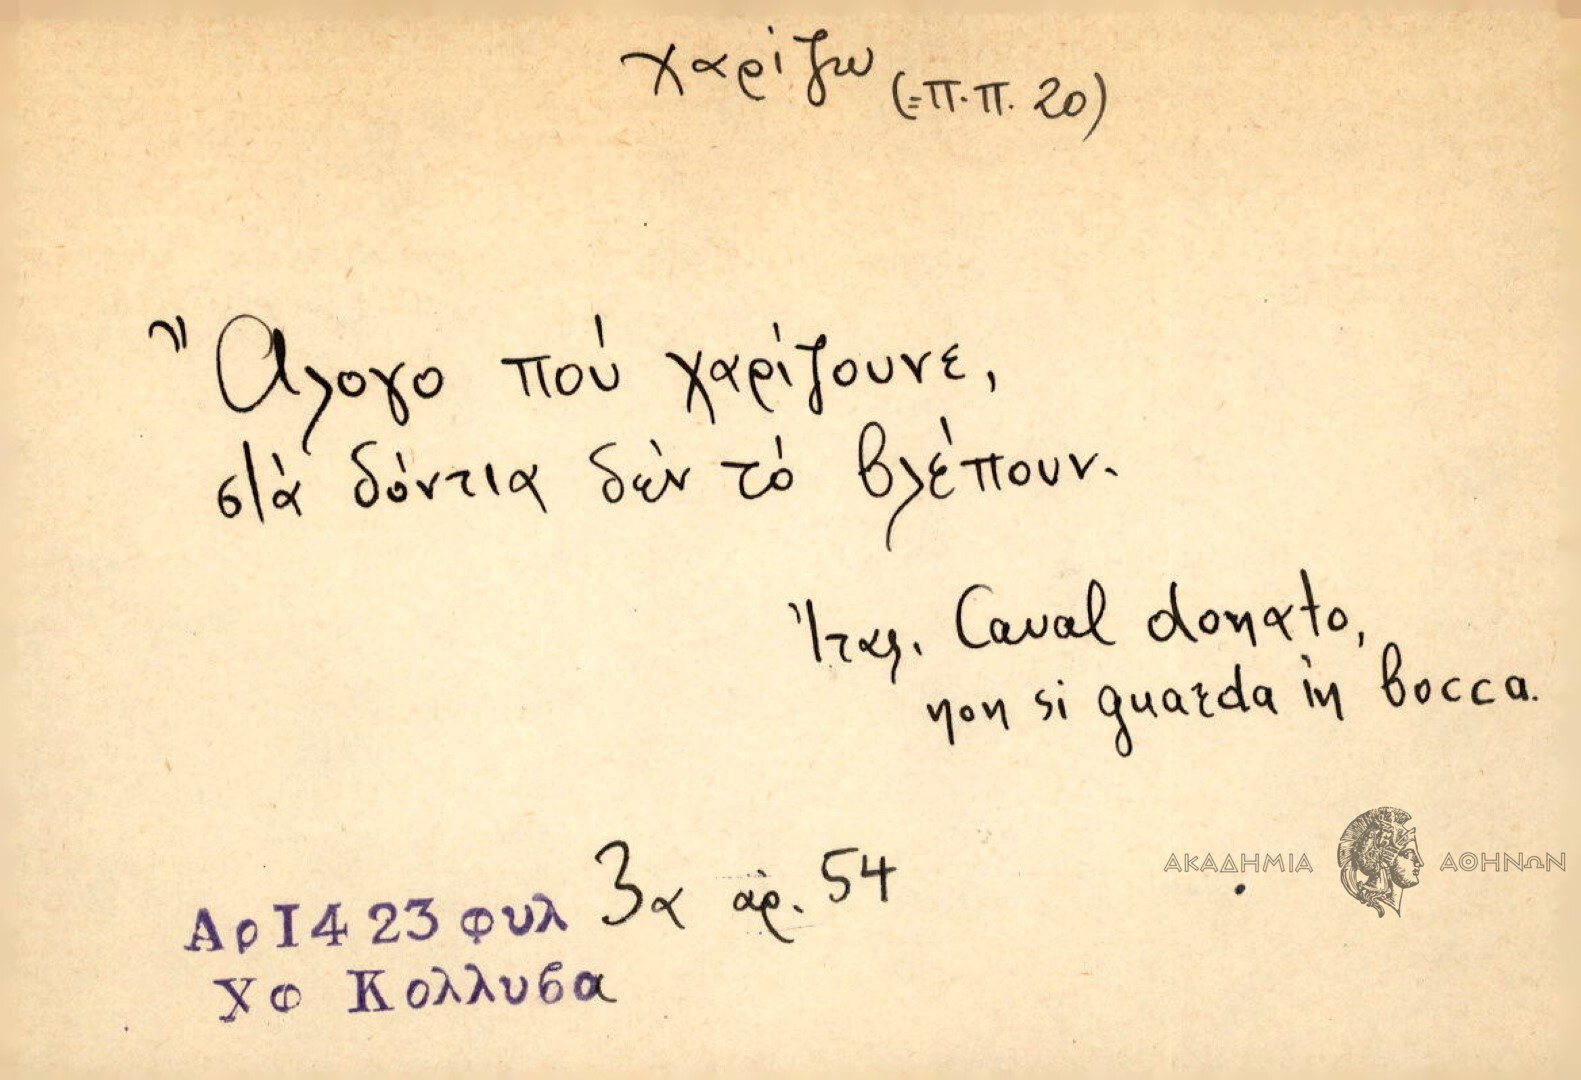 χαρίζω (=π.π. 20)
Ἄλογο πού χαρίζουνε,
στὰ δόντια δὲν τό βλέπουν.
Ἰταλ. Caval donato,
non si guarda in bocca.
ΑΚΑΔΗΜΙΑ ΑΘΗΝΩΝ
Αρ 1423 φυλ 3α ἀρ. 54
Χφ Κολλυβα